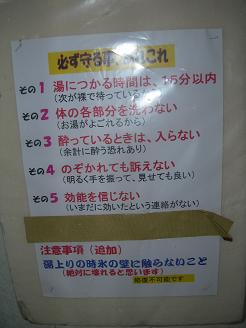 必ず守る事、あれこれ
その1 湯につかる時間は、15分以内
(次が裸で待っているから)
その2 体の各部分を洗わない
(お湯がよごれるから)
その3 酔っているときは、入らない
(余計に酔う恐れあり)
その4 のぞかれても訴えない
(明るく手を振って、見せても良い)
その5 効能を信じない
(いまだに効いたという連絡がない)
注意事項(追加)
湯上りの時氷の壁に触らないこと
(絶対に壊れると思います)
修復不可能です